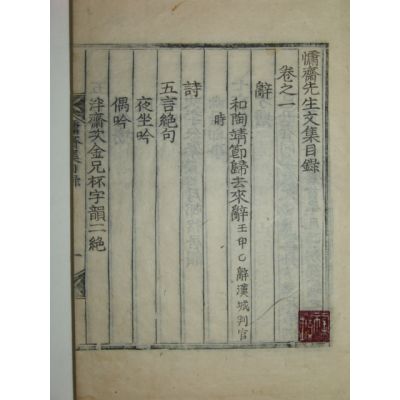 慵齋先生文集目錄
卷之一
辭
和陶靖節歸去來辭壬甲乙辭漢城判官
時
詩
五言絶句
夜坐吟
偶吟
泮齋次金兄杯字韻二絶